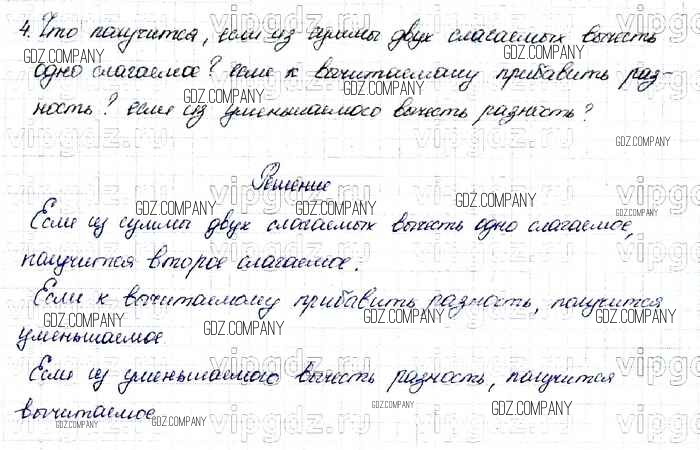 4. Что получится, если из суммы двух слагаемых вычесть
одно слагаемое? если к вычитаемому прибавить раз-
ность? если из уменьшаемого вычесть разность?
Решение
Если из суммы двух слагаемых вычесть одно слагаемое,
получится второе слагаемое.
Если к вычитаемому прибавить разность, получится
уменьшаемое
Если из уменьшаемого вычесть разность, получится
вычитаемое